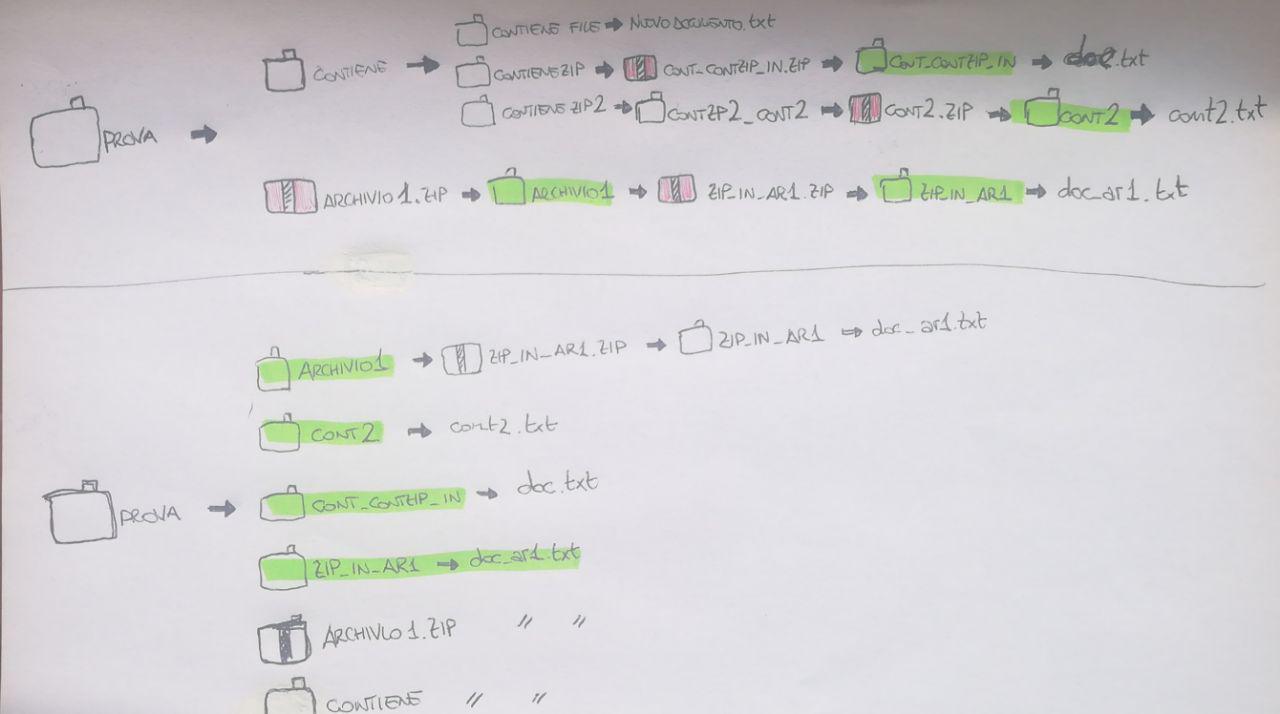 CONTIENE FILE → NUOVO DOCUMENTO.txt
CONTIENE → CONTIENEZIP → CONT_CONTZIP_IN.ZIP → CONT_CONTZIP_IN → doc.txt
PROVA → CONTIENE ZIP2 → CONTZP2_CONT2 → CONT2.ZIP → CONT2 → cont2.txt
ARCHIVIO1.ZIP → ARCHIVIO1 → ZIP_IN_AR1.ZIP → ZIP_IN_AR1 → doc_ar1.txt
ARCHIVIO1 → ZIP_IN_AR1.ZIP → ZIP_IN_AR1 → doc_ar1.txt
CONT2 → cont2.txt
PROVA → CONT_CONTZIP_IN → doc.txt
ZIP_IN_AR1 → doc_ar1.txt
ARCHIVIO1.ZIP " "
CONTIENE " "